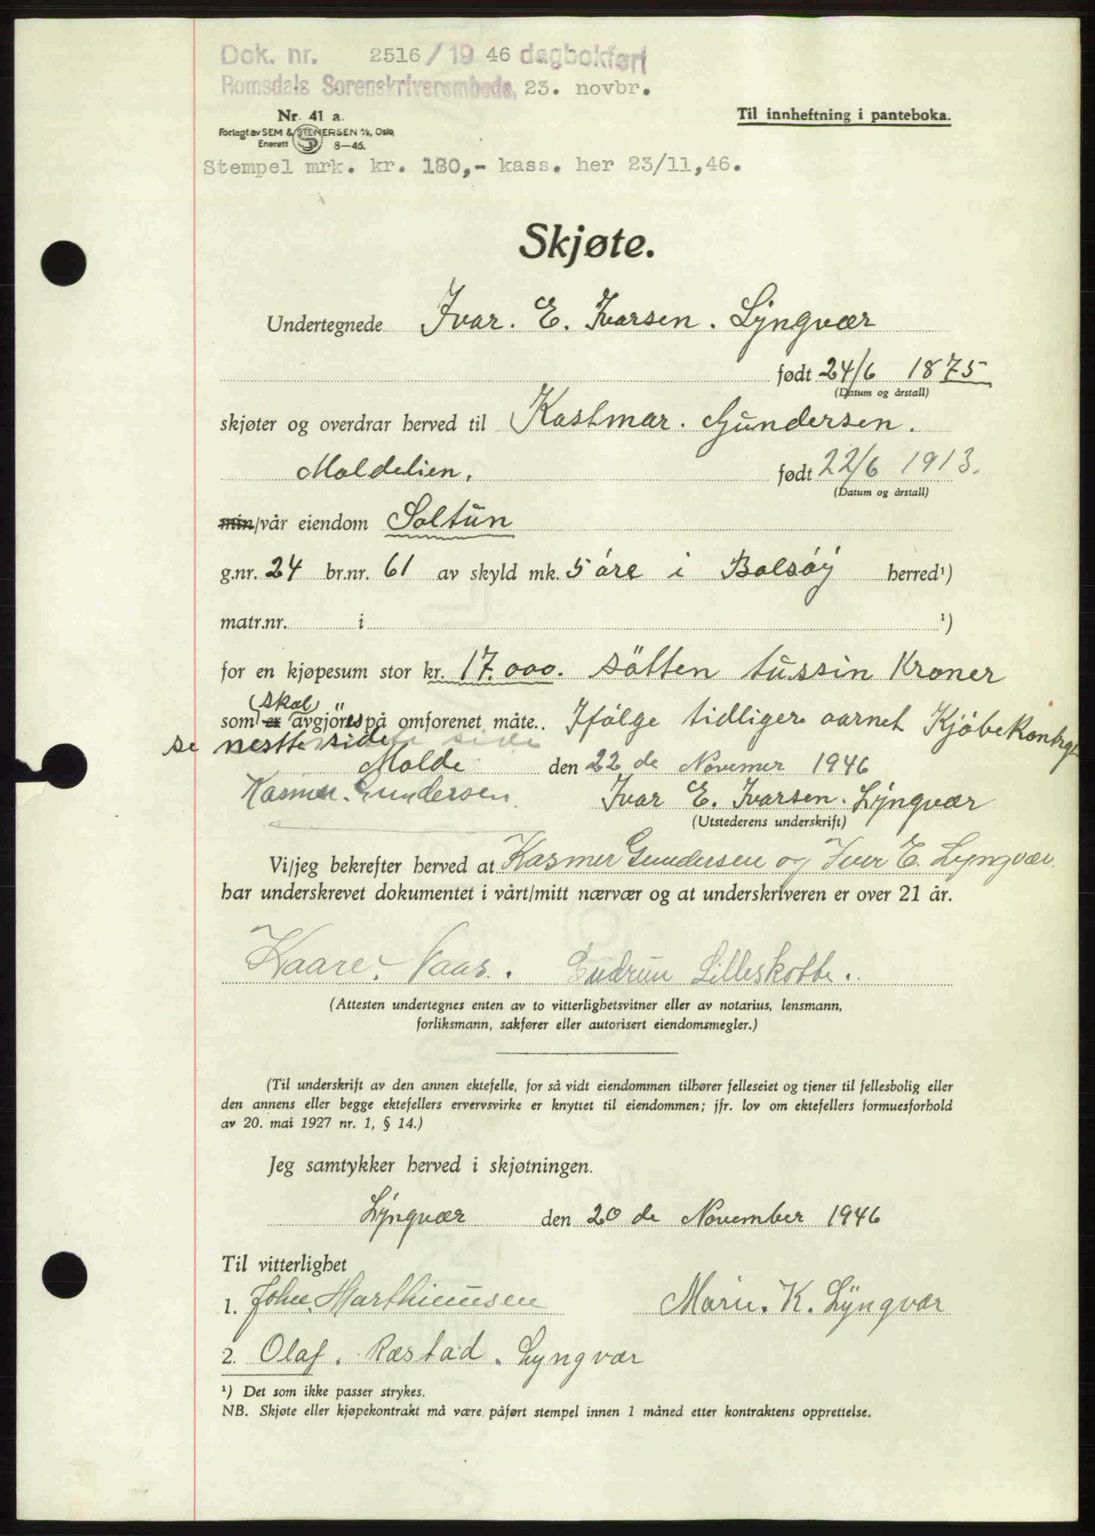 Dok. nr. 2516/1946 dagbokført
Romsdals Sorenskriverembede, 23. novbr.
Nr. 41 a.
Til innheftning i panteboka.
Forlagt av SEM & STENERSEN A/S, Oslo
Enerett 8-46.
Stempel mrk. kr. 180,- kass. her 23/11,46.
Skjøte.
Undertegnede Ivar. E. Ivarsen. Lyngvær
født 24/6 1875
(Datum og årstall)
skjøter og overdrar herved til Kashmar. Gundersen.
Moldelien. født 22/6 1913.
(Datum og årstall)
min/vår eiendom Soltun
g.nr. 24 br.nr. 61 av skyld mk. 5 øre i Bolsøy herred¹)
matr.nr. i ¹)
for en kjøpesum stor kr. 17.000. søtten tussin Kroner
(skal)
som er avgjøres på omforenet måte.. Ifølge tidligere oarnet Kjøbekontrgt
se nestte side
Molde den 22 de Novemer 1946
Kasmer. Gundersen. Ivar E. Ivarsen. Lyngvær
(Utstederens underskrift)
Vi/jeg bekrefter herved at Kasmer Gundersen og Iver E. Lyngvær.
har underskrevet dokumentet i vårt/mitt nærvær og at underskriveren er over 21 år.
Kaare. Naas. Gudrun Lilleskotte.
(Attesten undertegnes enten av to vitterlighetsvitner eller av notarius, lensmann,
forliksmann, sakfører eller autorisert eiendomsmegler.)
(Til underskrift av den annen ektefelle, for så vidt eiendommen tilhører felleseiet og tjener til fellesbolig eller
den annens eller begge ektefellers ervervsvirke er knyttet til eiendommen; jfr. lov om ektefellers formuesforhold
av 20. mai 1927 nr. 1, § 14.)
Jeg samtykker herved i skjøtningen.
Lyngvær den 20 de November 1946
Til vitterlighet
1. John. Marthinusen Marie. K. Lyngvær
2. Olaf. Ræstad. Lyngvær
¹) Det som ikke passer strykes.
NB. Skjøte eller kjøpekontrakt må være påført stempel innen 1 måned etter kontraktens opprettelse.